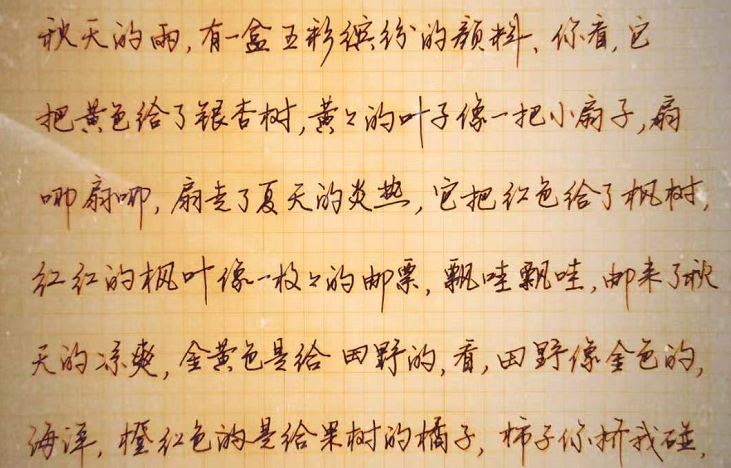 秋天的雨,有一盒五彩缤纷的颜料、你看,它
把黄色给了银杏树,黄々的叶子像一把小扇子,扇
哪扇哪,扇走了夏天的炎热,它把红色给了枫树,
红红的枫叶像一枚々的邮票,飘哇飘哇,邮来了秋
天的凉爽,金黄色是给田野的,看,田野像金色的,
海洋,橙红色的是给果树的橘子,柿子你挤我碰,